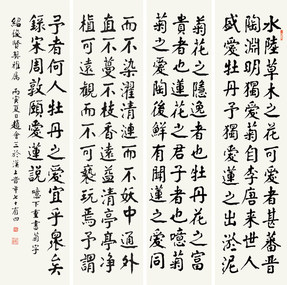 水陸草木之花可愛者甚蕃晉
陶淵明獨愛菊自李唐來世人
盛愛牡丹予獨愛蓮之出淤泥
菊花之隱逸者也牡丹花之富
貴者也蓮花之君子者也噫菊
菊之愛陶後鮮有聞蓮之愛同
而不染濯清漣而不妖中通外
直不蔓不枝香遠益清亭亭淨
植可遠觀而不可褻玩焉予謂
子者何人牡丹之愛宜乎衆矣
錄宋周敦頤愛蓮說 噫下重書菊字
紹俊賢契雅屬 丙寅夏日趙 三於溪上 年七十有四